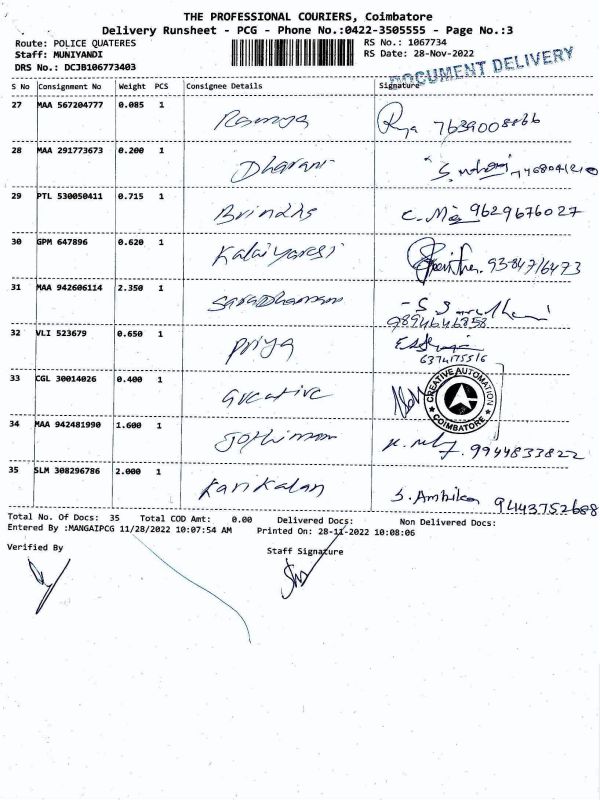 THE PROFESSIONAL COURIERS, Coimbatore
Delivery Runsheet - PCG - Phone No.:0422-3505555 - Page No.:3
Route: POLICE QUATERES RS No.: 1067734
Staff: MUNIYANDI RS Date: 28-Nov-2022
DRS No.: DCJB106773403
DOCUMENT DELIVERY
S No Consignment No Weight PCS Consignee Details Signature
27 MAA 567204777 0.085 1 Ramya 7639008866
28 MAA 291773673 0.200 1 Dharani
29 PTL 530050411 0.715 1 Brindha 9629676027
30 GPM 647896 0.620 1 Kalaiyarasi 9384716473
31 MAA 942606114 2.350 1
9894646858
32 VLI 523679 0.650 1 Priya
6374175516
33 CGL 30014026 0.400 1 CREATIVE AUTOMATION COIMBATORE
34 MAA 942481990 1.600 1 9944833822
35 SLM 308296786 2.000 1 Karikalan S. Ambika 9443752688
Total No. Of Docs: 35 Total COD Amt: 0.00 Delivered Docs: Non Delivered Docs:
Entered By :MANGAIPCG 11/28/2022 10:07:54 AM Printed On: 28-11-2022 10:08:06
Verified By Staff Signature